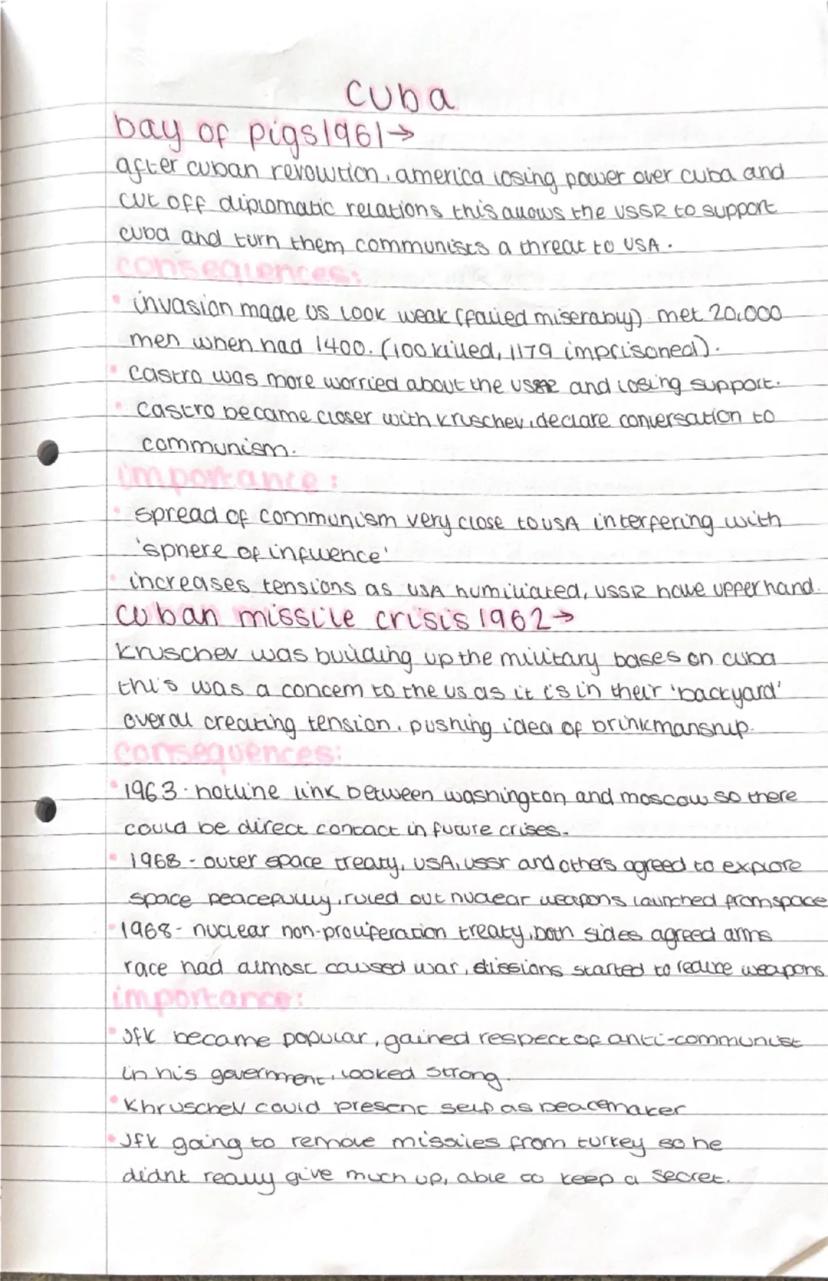 cuba
bay of pigs 1961→
after cuban revolution, america losing power over cuba and
cut off diplomatic relations this allows the USSR to support
cuba and turn them communists a threat to USA.
consequences:
• invasion made US look weak (failed miserably) met 20,000
men when had 1400. (100 killed, 1179 imprisoned).
• castro was more worried about the US and losing support.
• castro became closer with kruschev, declare conversation to
communism.
importance:
• spread of communism very close to USA interfering with
'sphere of influence'
• increases tensions as USA humiliated, USSR have upper hand.
cuban missile crisis 1962→
kruschev was building up the military bases on cuba
this was a concern to the us as it is in their 'backyard'
overall creating tension, pushing idea of brinkmanship.
consequences:
• 1963 - hotline link between washington and moscow so there
could be direct contact in future crises.
• 1968 - outer space treaty, USA, ussr and others agreed to explore
space peacefully, ruled out nuclear weapons launched from space
• 1968- nuclear non-proliferation treaty, both sides agreed arms
race had almost caused war, started to reduce weapons
importance:
• Jfk became popular, gained respect of anti-communist
in his government, looked strong.
• Khruschev could present self as peacemaker
• Jfk going to remove missiles from turkey so he
didnt really give much up, able to keep a secret.